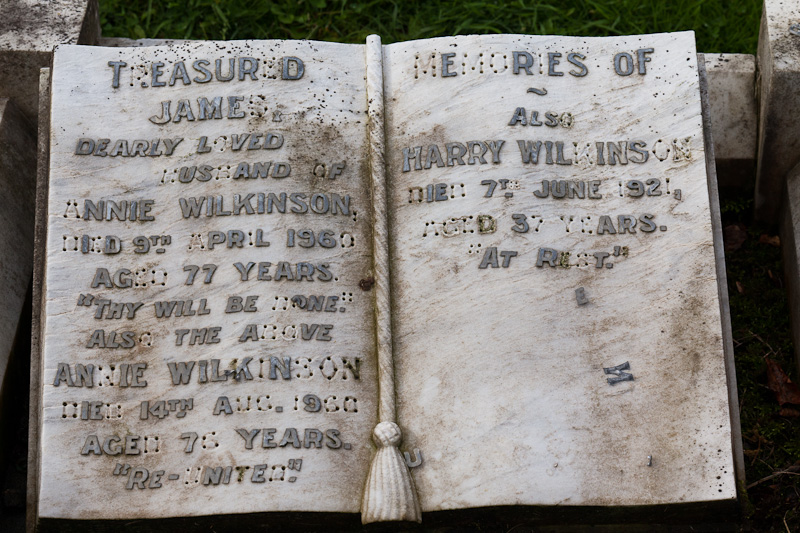 TREASURED MEMORIES OF
JAMES,
DEARLY LOVED
HUSBAND OF
ANNIE WILKINSON,
DIED 9TH APRIL 1960
AGED 77 YEARS.
"THY WILL BE DONE."
ALSO THE ABOVE
ANNIE WILKINSON
DIED 14TH AUG. 1960
AGED 76 YEARS.
"RE-UNITED."
~
ALSO
HARRY WILKINSON
DIED 7TH JUNE 1921,
AGED 37 YEARS.
"AT REST."